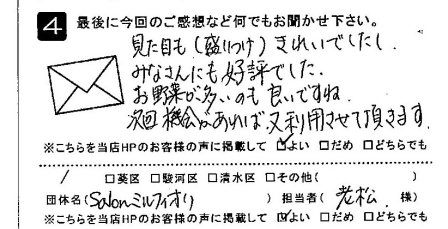 4 最後に今回のご感想など何でもお聞かせ下さい。
見た目も(盛りつけ)きれいでしたし、
みなさんにも好評でした。
お野菜が多いのも良いですね。
次回機会があれば又利用させて頂きます。
※こちらを当店HPのお客様の声に掲載して ☑よい □だめ □どちらでも
/ □葵区 □駿河区 □清水区 □その他(
団体名(Salonミルフィオリ ) 担当者( 老松 様)
※こちらを当店HPのお客様の声に掲載して ☑よい □だめ □どちらでも